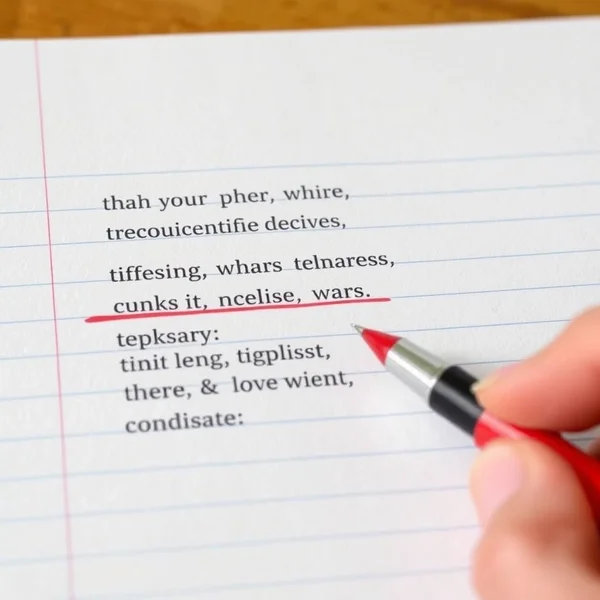 thah your pher, whire,
trecouicentifie decives,
tiffesing, whars telnaress,
cunks it, ncelise, wars.
tepksary:
tinit leng, tigplisst,
there, & love wient,
condisate: